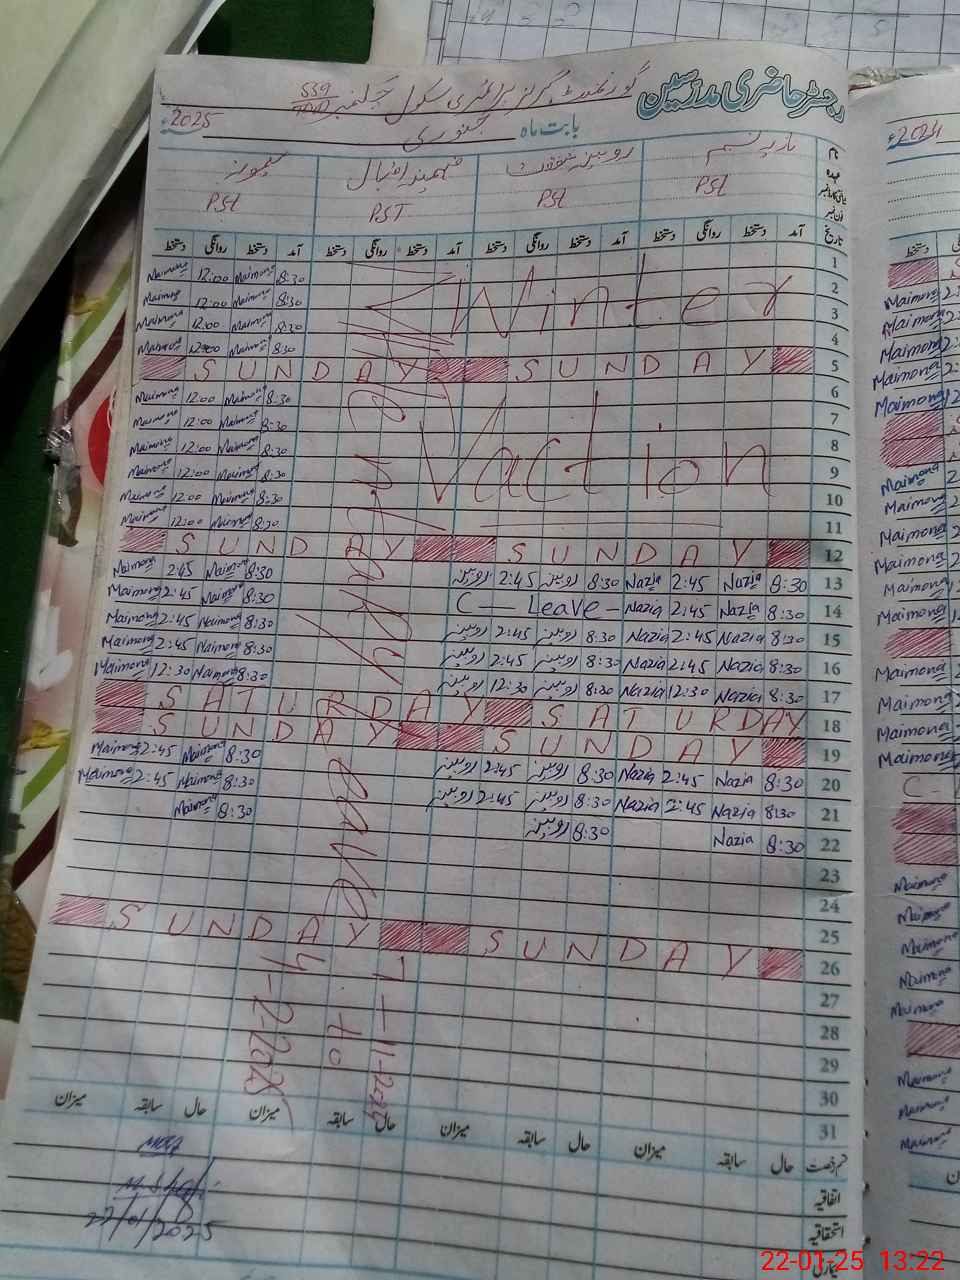 رجسٹر حاضری مدرسین
گورنمنٹ گرلز پرائمری سکول
بابت ماہ جنوری 2025ء
نام نازیہ نسیم روبینہ شفقت فہمیدہ اقبال میمونہ
عہدہ PSt PSt PST PSt
تاریخ آمد دستخط روانگی دستخط آمد دستخط روانگی دستخط آمد دستخط روانگی دستخط آمد دستخط روانگی دستخط
Winter
Vaction
Maternity Leave
7-11-2024
to
4-2-2025
1 Maimona 12:00 Maimona 8:30
2 Maimona 12:00 Maimona 8:30
3 Maimona 12:00 Maimona 8:30
4 Maimona 12:00 Maimona 8:30
5 SUNDAY SUNDAY
6 Maimona 12:00 Maimona 8:30
7 Maimona 12:00 Maimona 8:30
8 Maimona 12:00 Maimona 8:30
9 Maimona 12:00 Maimona 8:30
10 Maimona 12:00 Maimona 8:30
11 Maimona 12:00 Maimona 8:30
12 SUNDAY SUNDAY
13 Maimona 2:45 Maimona 8:30 روبینہ 2:45 روبینہ 8:30 Nazia 2:45 Nazia 8:30
14 Maimona 2:45 Maimona 8:30 C - Leave - Nazia 2:45 Nazia 8:30
15 Maimona 2:45 Maimona 8:30 روبینہ 2:45 روبینہ 8:30 Nazia 2:45 Nazia 8:30
16 Maimona 2:45 Maimona 8:30 روبینہ 2:45 روبینہ 8:30 Nazia 2:45 Nazia 8:30
17 Maimona 12:30 Maimona 8:30 روبینہ 12:30 روبینہ 8:30 Nazia 12:30 Nazia 8:30
18 SATURDAY SATURDAY
19 SUNDAY SUNDAY
20 Maimona 2:45 Maimona 8:30 روبینہ 2:45 روبینہ 8:30 Nazia 2:45 Nazia 8:30
21 Maimona 2:45 Maimona 8:30 روبینہ 2:45 روبینہ 8:30 Nazia 2:45 Nazia 8:30
22 Maimona 8:30 روبینہ 8:30 Nazia 8:30
23
24
25
26 SUNDAY SUNDAY
27
28
29
30
31
قسم رخصت حال سابقہ میزان حال سابقہ میزان حال سابقہ میزان حال سابقہ میزان
اتفاقیہ
استحقاقیہ
بیماری
22/01/2025
22-01-25 13:22